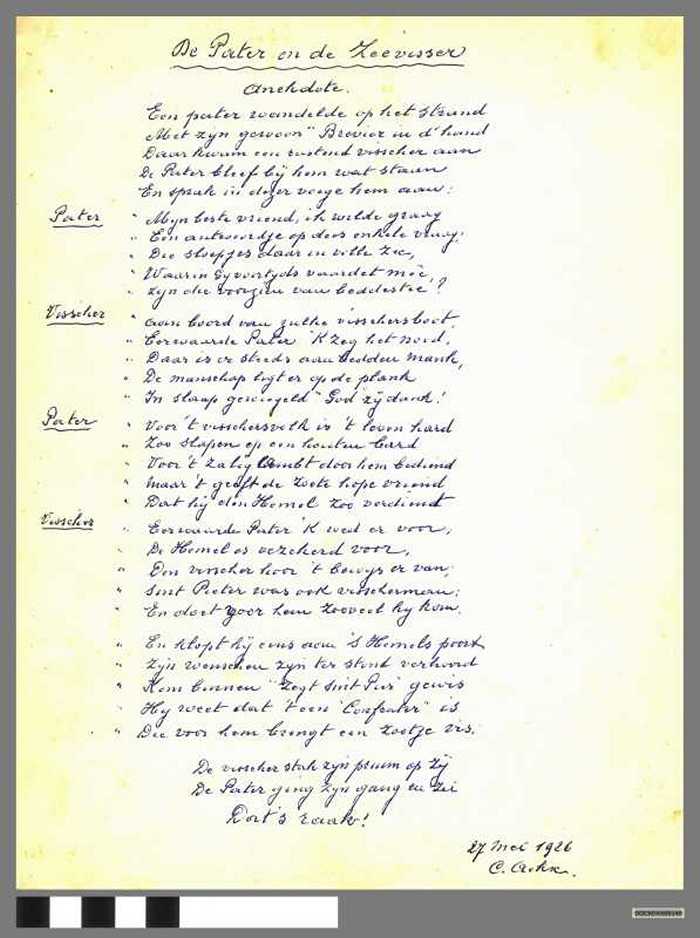 De Pater en de Zeevisser
Anekdote.
Een pater wandelde op het strand
Met zyn gewoon "Brevier in d' hand
Daar kwam een rustend visscher aan
De Pater bleef bij hem wat staan
En sprak in dezer voege hem aan:
Pater " Myn beste vriend, ik wilde graag
" Een antwoordje op dees enkele vraag;
" Die sloepjes daar in volle zee,
" Waarin gy voortyds vaardet mêe,
" zyn die voorzien van beddestee!?
Visscher " Aan boord van zulke visschersboot,
" Eerwaarde Pater 'K zeg het nood,
" Daar is er steeds aan bedden mank,
" De manschap ligt er op de plank
" In slaap gewiegeld "God zÿ dank!
Pater " Voor 't visschersvolk is 't leven hard
" Zoo slapen op een houten bard
" Voor 't zalig door hem bediend
" Maar 't geeft de zoete hope vriend
" Dat hij den Hemel zoo verdiend
Visscher " Eerwaarde Pater 'K wed er voor,
" De Hemel es verzekerd voor,
" Den visscher hoor 't bewys er van;
" Sint Pieter was ook visscherman;
" En doet voor hem zooveel hy kan.
" En klopt hÿ eens aan 's Hemels poort
" Zijn wenschen zyn ter stond verhoord
" Kom binnen "Zegt Sint Pier" gewis
" Hy weet dat 't een "Confrater" is
" Die voor hem brengt een zootje vis.
De visscher stak zyn pruim op zÿ
De Pater ging zyn gang en zei
Dat's raak!
27 Mei 1926